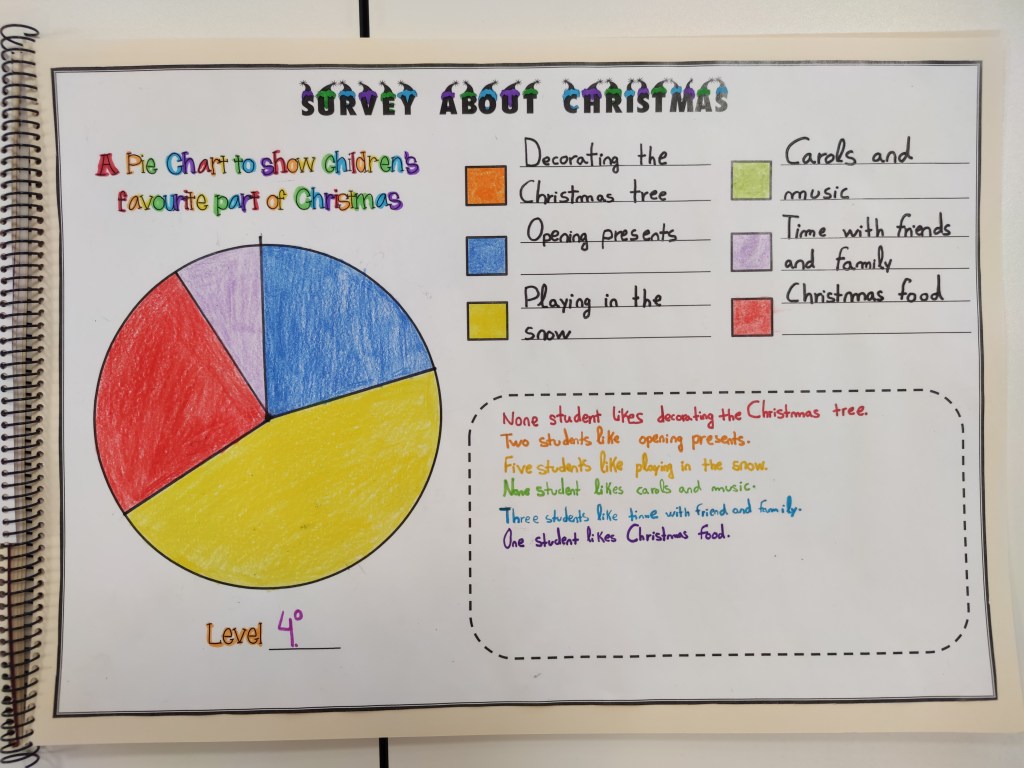 SURVEY ABOUT CHRISTMAS
A Pie Chart to show children's
favourite part of Christmas
Decorating the
Christmas tree
Opening presents
Playing in the
snow
Carols and
music
Time with friends
and family
Christmas food
None student likes decorating the Christmas tree.
Two students like opening presents.
Five students like playing in the snow.
None student likes carols and music.
Three students like time with friend and family.
One student likes Christmas food.
Level 4º